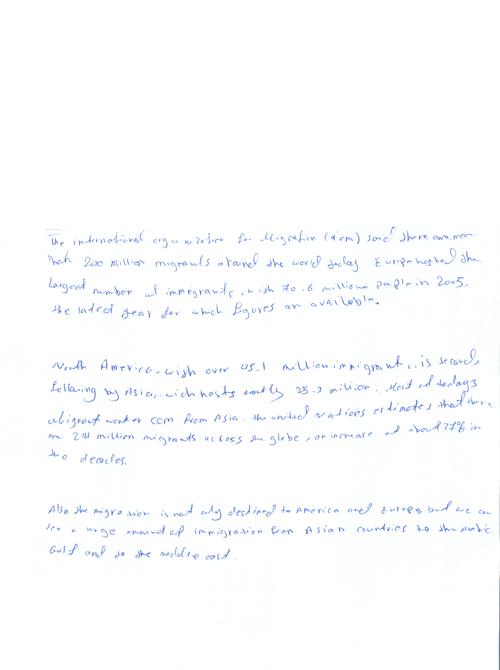 The international organization for Migration (iom) said there are more
than 200 million migrants around the world today. Europe hosted the
largest number of immigrants, with 70.6 million people in 2005,
the latest year for which figures are available.
North America, with over 45.1 million immigrants, is second,
following by Asia, wich hosts nearly 25.3 million. Most of todays
migrant worker com from Asia. the united Nations estimates that there
are 214 million migrants across the globe, an increase of about 37% in
two decades.
Also the migration is not only destined to America and Europe, but we can
see a large amount of immigration from Asian countries to the Arabic
Gulf and to the middle east.